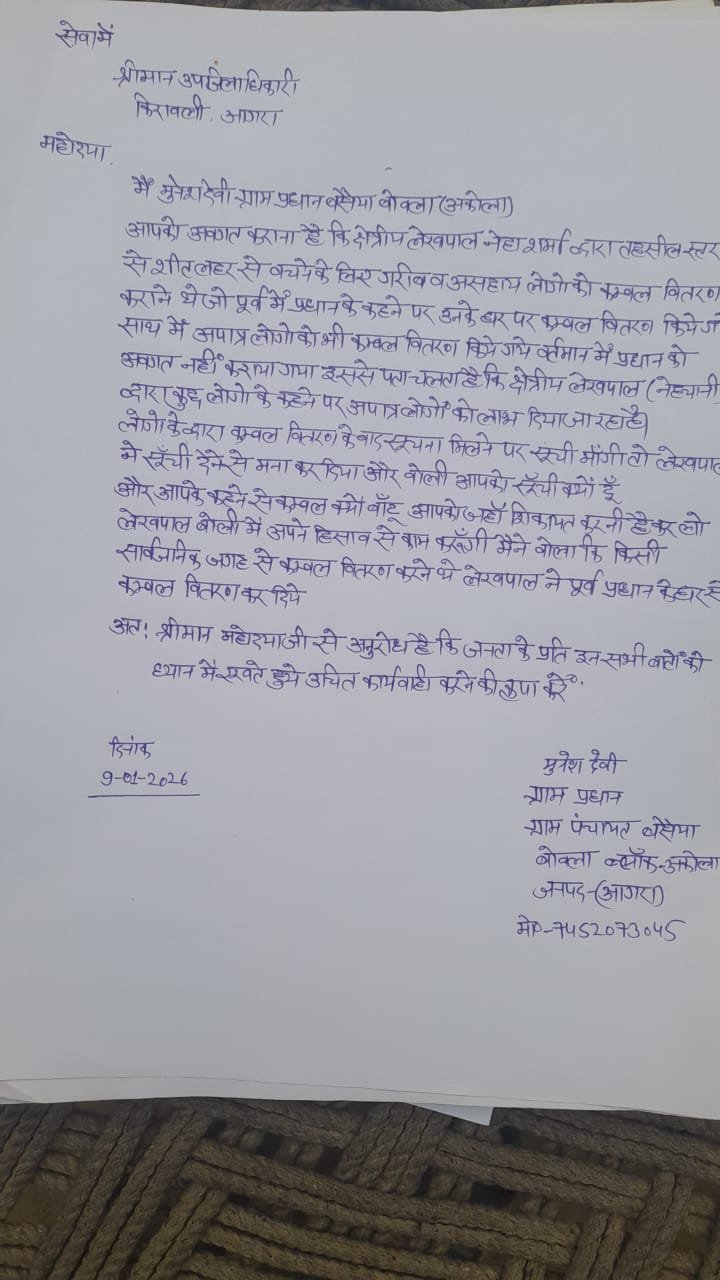 सेवामें
श्रीमान उपजिलाधिकारी
किरावली, आगरा
महोदया,
मैं मुनेश देवी ग्राम प्रधान बसैया बोक्ला (अकोला)
आपको अवगत कराना है कि क्षेत्रीय लेखपाल नेहा शर्मा द्वारा तहसील स्तर
से शीत लहर से बचने के लिए गरीब व असहाय लोगो को कम्बल वितरण
कराने थे जो पूर्व में प्रधान के कहने पर उनके घर पर कम्बल वितरण किये
साथ में अपात्र लोगो को भी कम्बल वितरण किये गये वर्तमान में प्रधान को
अवगत नहीं कराया गया इससे पता चलता है कि क्षेत्रीय लेखपाल (नेहा
द्वारा कुछ लोगो के कहने पर अपात्र लोगों को लाभ दिया जा रहा है)
लोगो के द्वारा कम्बल वितरण के बाद सूचना मिलने पर सूंची माँगी तो लेखपाल
ने सूँची देने से मना कर दिया और बोली आपको सूँची क्यों दूँ
और आपके कहने से कम्बल क्यों बाँटू आपको जहाँ शिकायत करनी है कर लो
लेखपाल बोली में अपने हिसाव से काम करूँगी मैने बोला कि किसी
सार्वजनिक जगह से कम्बल वितरण करने थे लेखपाल ने पूर्व प्रधान के घर से
कम्बल वितरण कर दिये
अतः श्रीमान महोदया जी से अनुरोध है कि जनता के प्रति इन सभी बातों को
ध्यान में रखते हुये उचित कार्यवाही करने की कृपा करें.
दिनांक
9-01-2026
मुनेश देवी
ग्राम प्रधान
ग्राम पंचायत बसैया
बोक्ला ब्लॉक-अकोला
जनपद-(आगरा)
मो0-7452073045